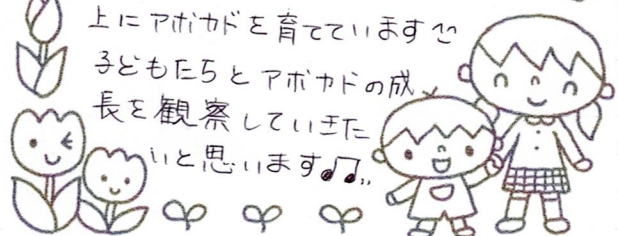 上にアボカドを育てています
子どもたちとアボカドの成
長を観察していきた
いと思います♪♫..